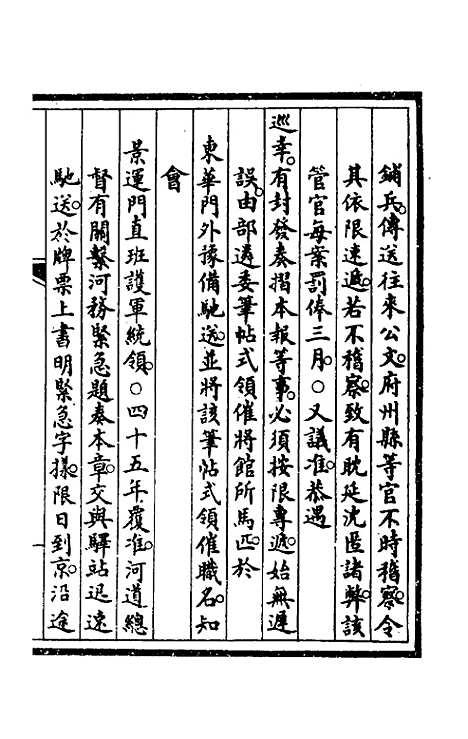 鋪兵。傳送往來公文。府州縣等官不時稽察。令
其依限速遞。若不稽察。致有眈延沈匿諸弊。該
管官每案罰俸三月。○又議准。恭遇
巡幸。有封發奏摺本報等事。必須按限專遞。始無遲
誤。由部遴委筆帖式領催將館所馬匹。於
東華門外豫備馳送。並將該筆帖式領催職名。知
會
景運門直班護軍統領。○四十五年覆准。河道總
督有關繫河務緊急題奏本章。交與驛站迅速
馳送。於牌票上書明緊急字樣。限日到京。沿途